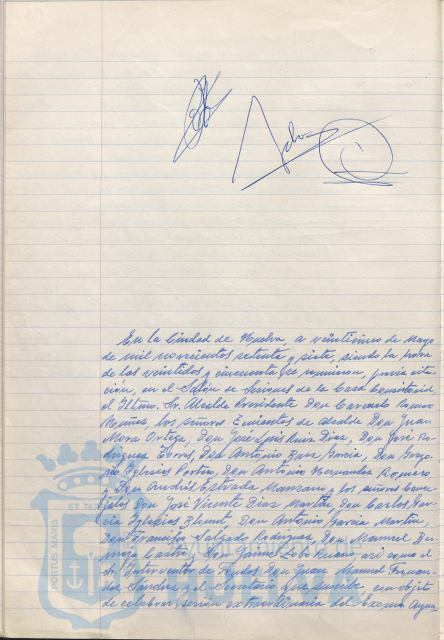 En la Ciudad de Huelva, a veinticinco de Mayo
de mil novecientos setenta y siete, siendo la hora
de las veintidos y cincuenta se reunieron, previa cita-
ción, en el Salón de Sesiones de la Casa Consistorial
el Iltmo. Sr. Alcalde Presidente Don Carmelo Romero
Núñez, los señores Tenientes de Alcalde Don Juan
Mora Ortega, Don José Luis Ruiz Díaz, Don José Ro-
dríguez, Don Antonio García, Don Grego-
rio Iglesias, Don Antonio Hernández Romero
y Don Andrés Estrada Manzano y los señores Conce-
jales Don José Vicente Díaz Martín, Don Carlos Gar-
cía Iglesias, Don Antonio García Martín,
Don Francisco Salgado Rodríguez, Don Manuel Ber-
meja Castro, Don Jaime Lobo así como el
Sr. Interventor de Fondos Don Juan Manuel Fernan-
dez Sánchez y el Secretario que suscribe, con objeto
de celebrar sesión extraordinaria del Excmo. Ayun
PORTUS MARIS ET TERRAE